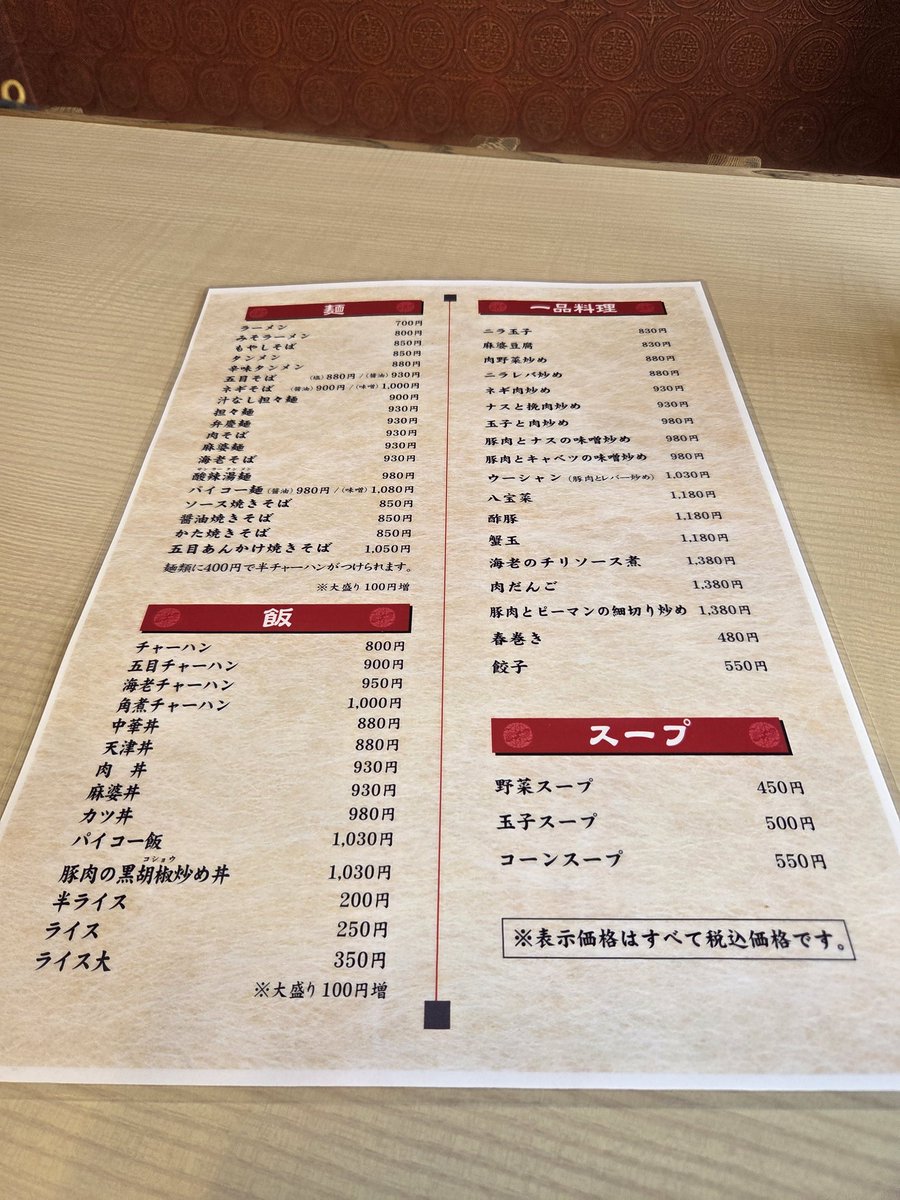 麺
ラーメン 700円
みそラーメン 800円
もやしそば 850円
タンメン 850円
辛味タンメン 880円
五目そば (塩)880円/(醤油)930円
ネギそば (醤油)900円/(味噌)1,000円
汁なし担々麺 900円
担々麺 930円
弁慶麺 930円
肉そば 930円
麻婆麺 930円
海老そば 930円
サンラータンメン
酸辣湯麺 980円
パイコー麺(醤油)980円/(味噌)1,080円
ソース焼きそば 850円
醤油焼きそば 850円
かた焼きそば 850円
五目あんかけ焼きそば 1,050円
麺類に400円で半チャーハンがつけられます。
※大盛り100円増
飯
チャーハン 800円
五目チャーハン 900円
海老チャーハン 950円
角煮チャーハン 1,000円
中華丼 880円
天津丼 880円
肉 丼 930円
麻婆丼 930円
カツ丼 980円
パイコー飯 1,030円
コショウ
豚肉の黒胡椒炒め丼 1,030円
半ライス 200円
ライス 250円
ライス大 350円
※大盛り100円増
一品料理
ニラ玉子 830円
麻婆豆腐 830円
肉野菜炒め 880円
ニラレバ炒め 880円
ネギ肉炒め 930円
ナスと挽肉炒め 930円
玉子と肉炒め 980円
豚肉とナスの味噌炒め 980円
豚肉とキャベツの味噌炒め 980円
ウーシャン(豚肉とレバー炒め) 1,030円
八宝菜 1,180円
酢豚 1,180円
蟹玉 1,180円
海老のチリソース煮 1,380円
肉だんご 1,380円
豚肉とピーマンの細切り炒め 1,380円
春巻き 480円
餃子 550円
スープ
野菜スープ 450円
玉子スープ 500円
コーンスープ 550円
※表示価格はすべて税込価格です。